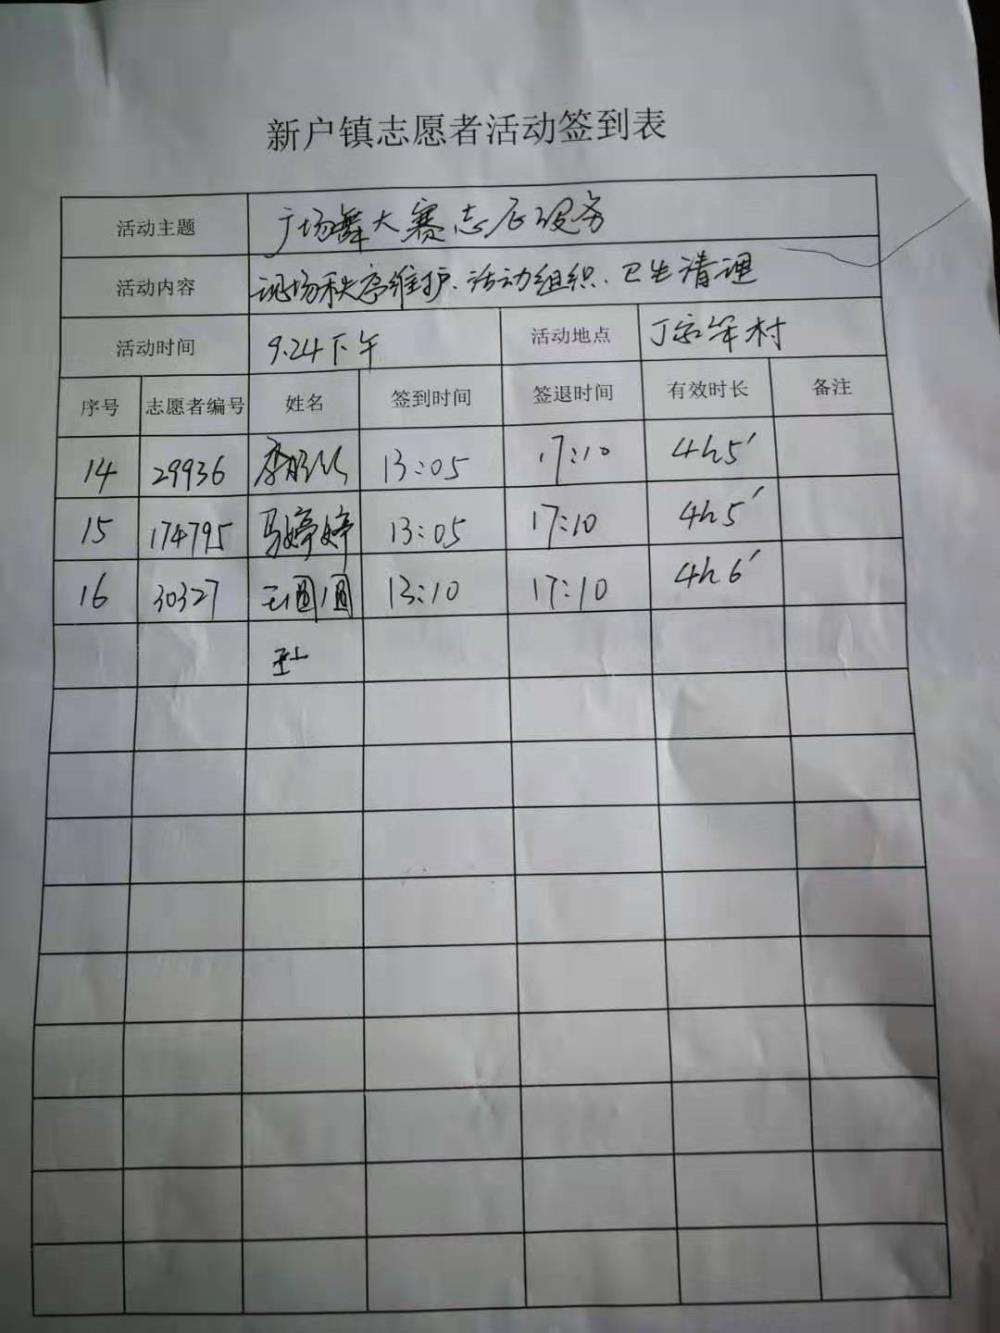 新户镇志愿者活动签到表
活动主题 广场舞大赛志愿服务
活动内容 现场秩序维护、活动组织、卫生清理
活动时间 9.24下午 活动地点 丁家年村
序号 志愿者编号 姓名 签到时间 签退时间 有效时长 备注
14 29936 13:05 17:10 4h5′
15 174795 马婷婷 13:05 17:10 4h5′
16 30327 王圆圆 13:10 17:10 4h6′